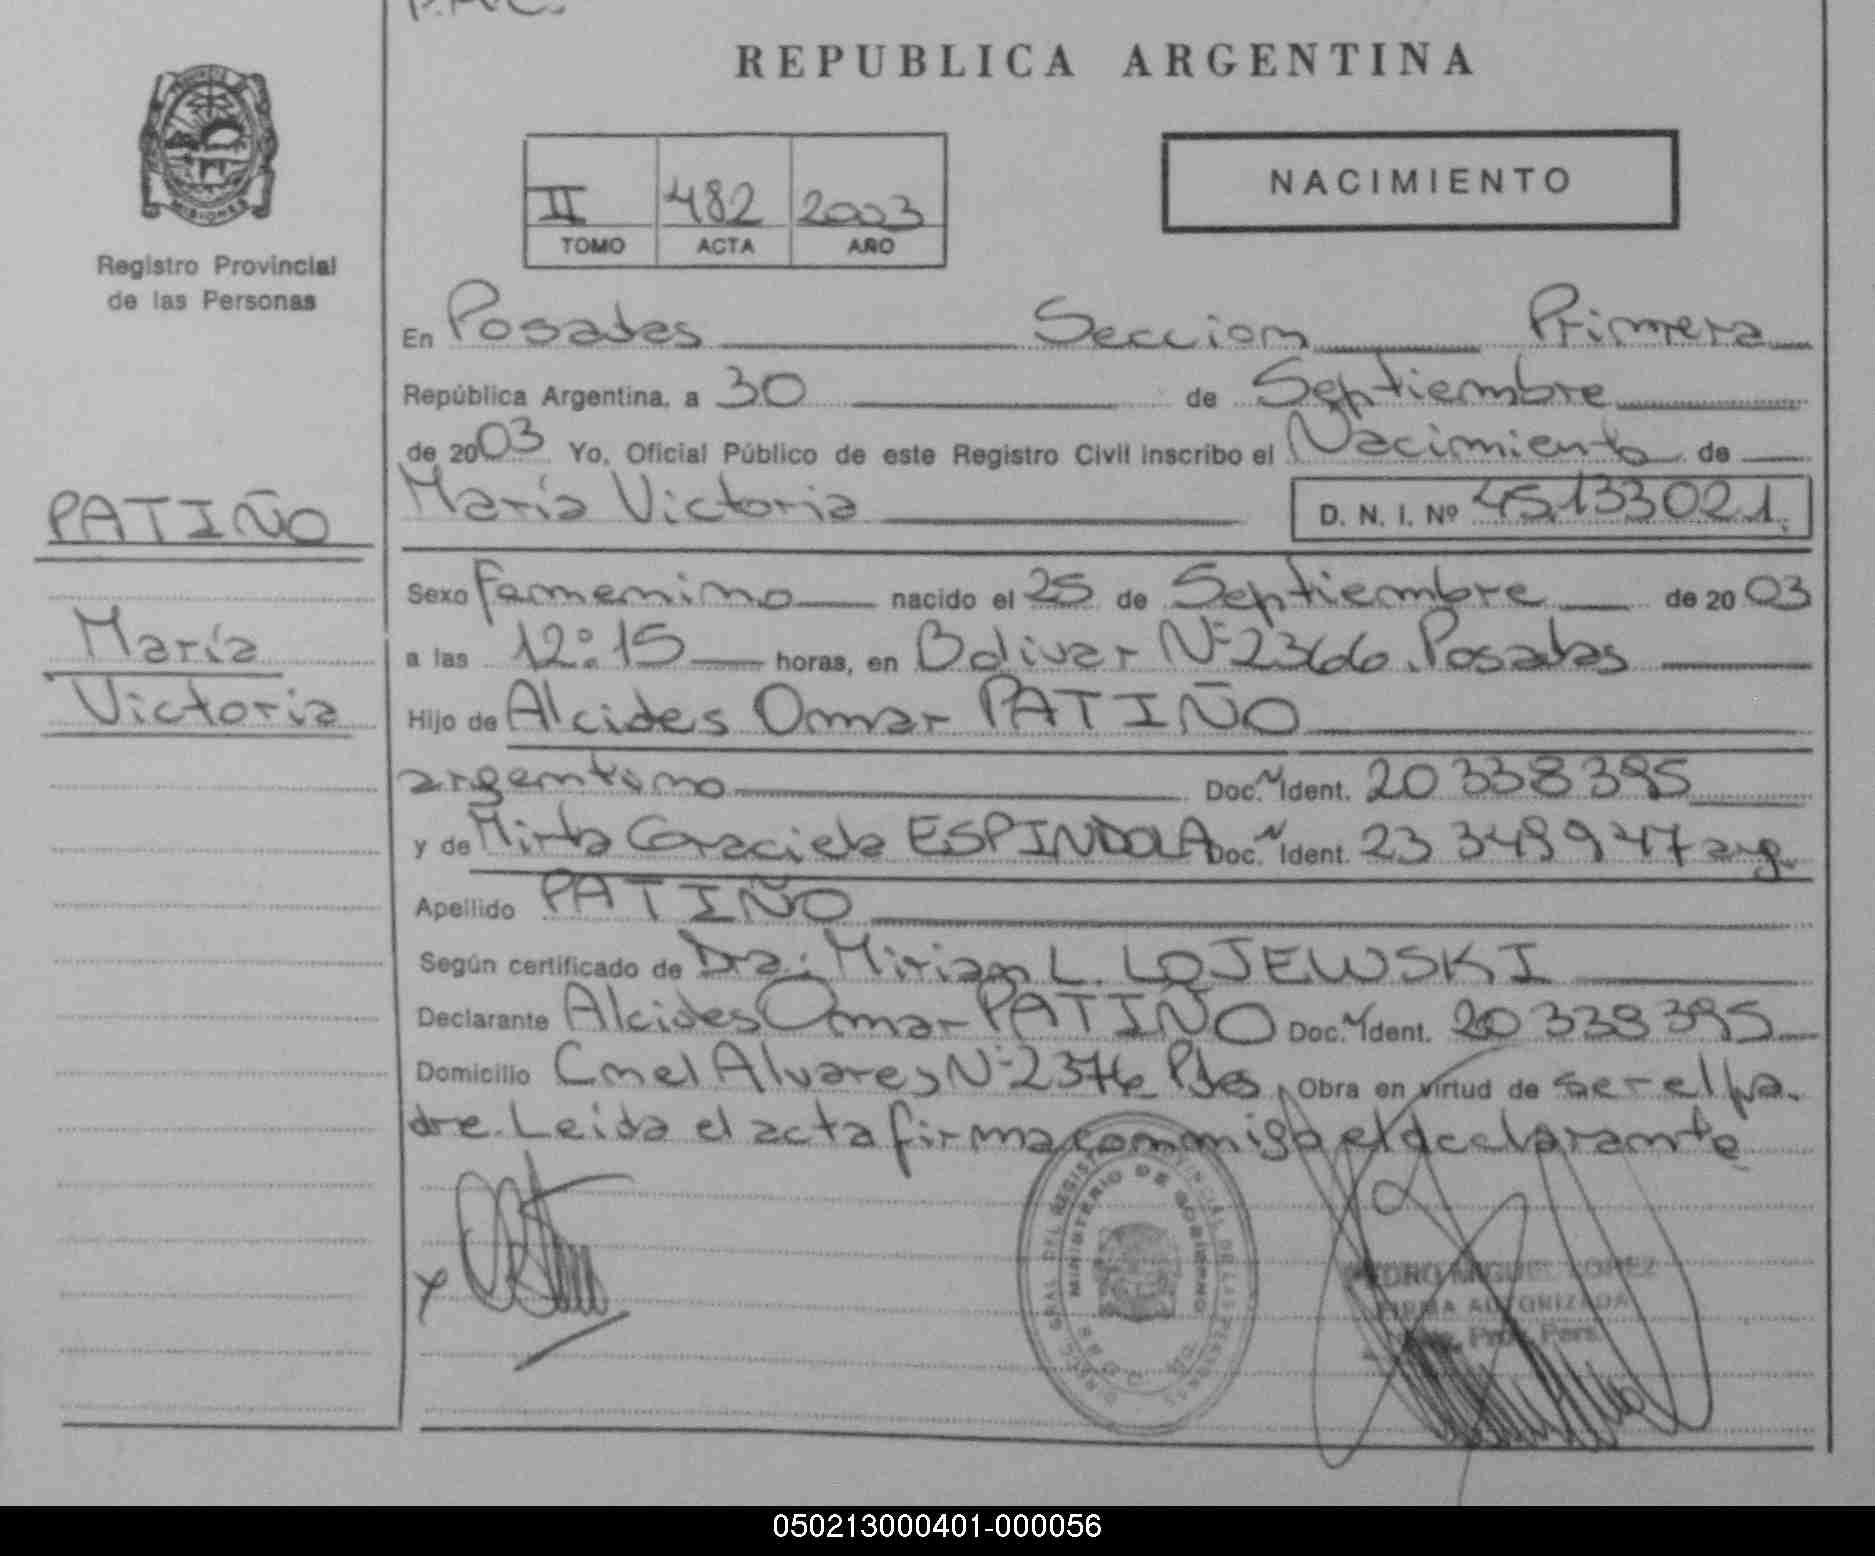 REPUBLICA ARGENTINA
MISIONES
Registro Provincial
de las Personas
II 482 2003
TOMO ACTA AÑO
NACIMIENTO
En Posadas Seccion Primera
República Argentina, a 30 de Septiembre
de 2003 Yo, Oficial Público de este Registro Civil inscribo el Nacimiento de
María Victoria D. N. I. Nº 45.133021.
PATIÑO
María
Victoria
Sexo Femenino nacido el 25 de Septiembre de 2003
a las 12:15 horas, en Bolivar Nº 2366. Posadas
Hijo de Alcides Omar PATIÑO
argentino Doc. Ident. 20 338 395
y de Mirta Graciela ESPINDOLA Doc. Ident. 23 349 947 arg.
Apellido PATIÑO
Según certificado de Dra: Miriam L. LOJEWSKI
Declarante Alcides Omar PATIÑO Doc. Ident. 20 338 395
Domicilio Cnel Alvares Nº 2376 Pdas Obra en virtud de ser el pa-
dre. Leida el acta firma conmigo el declarante
x
MINISTERIO DE GOBIERNO
MIGUEL LOPEZ
FIRMA AUTORIZADA
050213000401-000056